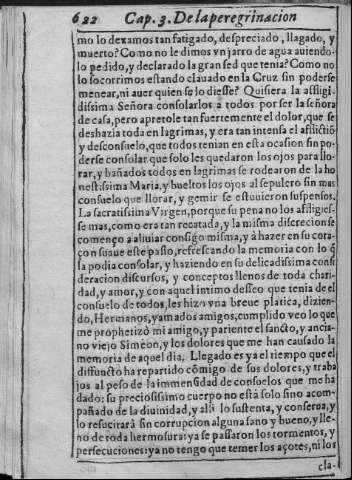 622 Cap. 3. De la peregrinacion
mo lo dexamos tan fatigado, despreciado, llagado, y
muerto? Como no le dimos vn jarro de agua auiendo-
lo pedido, y declarado la gran sed que tenia? Como no
lo socorrimos estando clauado en la Cruz sin poderse
menear, ni auer quien se lo diesse? Quisiera la affligi-
dissima Señora consolarlos a todos por ser la señora
de casa, pero apretole tan fuertemente el dolor, que se
deshazia toda en lagrimas, y era tan intensa el afflictiõ
y desconsuelo, que todos tenian en esta ocasion sin po-
derse consolar que solo les quedaron los ojos para llo-
rar, y bañados todos en lagrimas se rodearon de la ho
nestissima Maria, y bueltos los ojos al sepulcro sin mas
consuelo que llorar, y gemir se estuuieron suspensos.
La sacratissima Virgen, porque su pena no los affligies-
se mas, como era tan recatada, y la misma discrecion se
començo a aliuiar consigo misma, y à hazer en su cora-
çon suaue este passo, refrescando la memoria con lo q̃
la podia consolar, y haziendo en su delicadissima consi
deracion discursos, y conceptos llenos de toda chari-
dad, y amor, y con aquel intimo desseo que tenia de el
consuelo de todos, les hizo vna breue platica, dizien-
do, Hermanos, y amados amigos, cumplido veo lo que
me prophetizò mi amigo, y pariente el sancto, y ancia-
no viejo Simeon, y los dolores que me han causado la
memoria de aquel dia. Llegado es ya el tiempo que el
diffuncto ha repartido cõmigo de sus dolores, y traba
jos al peso de la immensidad de consuelos que me ha
dado: su preciosissimo cuerpo no està solo sino acom-
pañado de la diuinidad, y alli lo sustenta, y conserua, y
lo resucitarà sin corrupcion alguna sano y bueno, y lle-
no de toda hermosura: ya se passaron los tormentos, y
persecuciones: ya no tengo que temer los açotes, ni los
cla-